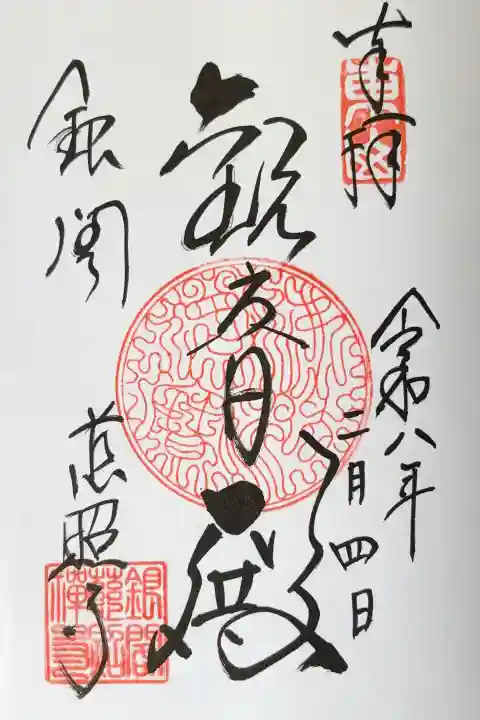 奉拝
令和八年
二月四日
観音殿
銀閣
慈照寺
銀閣慈照禅寺